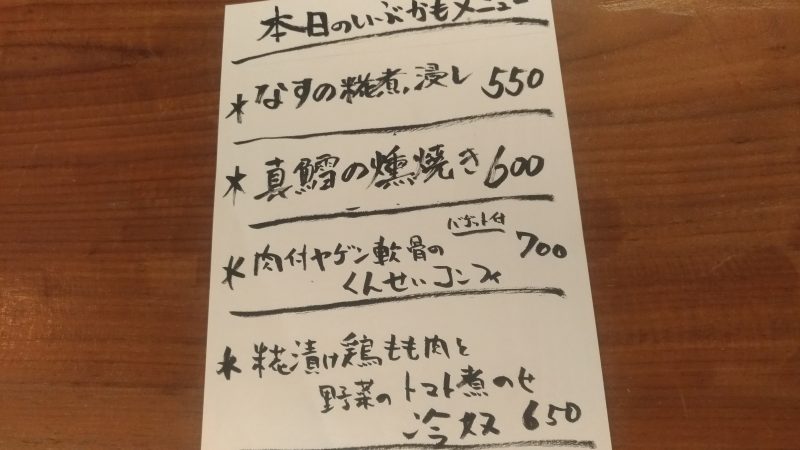 本日のいぶかもメニュー
* なすの糀煮浸し 550
* 真鱈の燻焼き 600
バケット付
* 肉付ヤゲン軟骨の 700
くんせいコンフィ
* 糀漬け鶏もも肉と
野菜のトマト煮のせ
冷奴 650